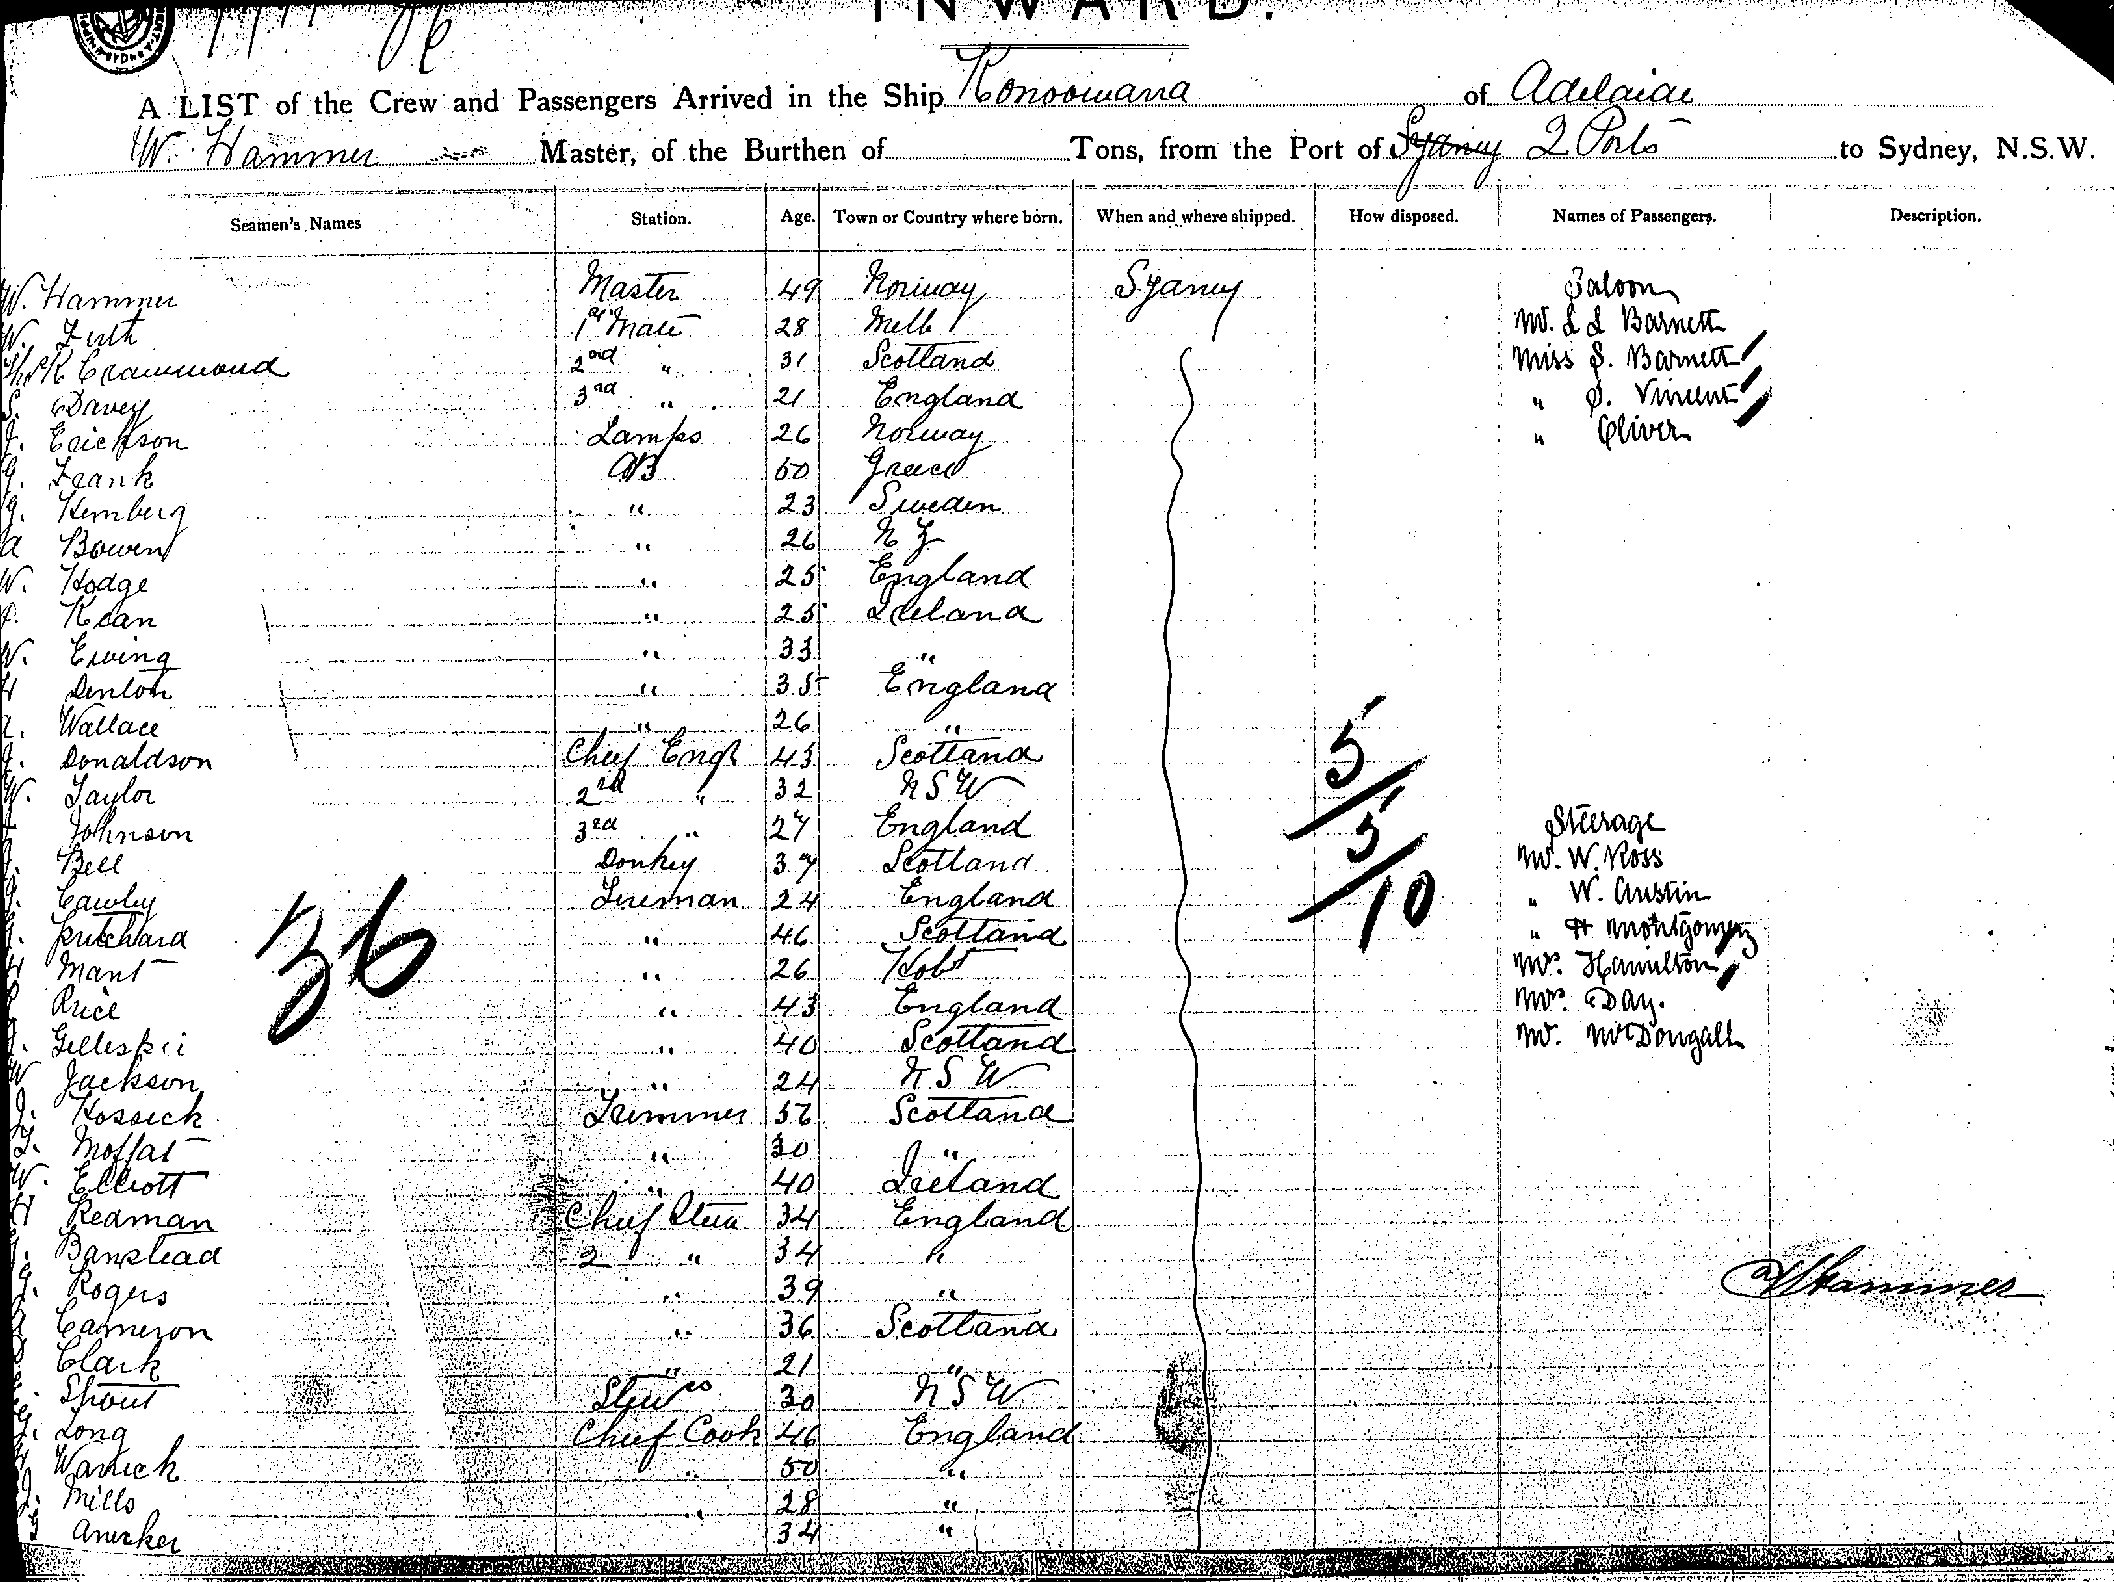 INWARD.
A LIST of the Crew and Passengers Arrived in the Ship Konoowana of Adelaide
W. Hammer Master, of the Burthen of Tons, from the Port of Sydney Q Ports to Sydney, N.S.W.
Seamen's Names Station. Age. Town or Country where born. When and where shipped. How disposed. Names of Passengers. Description.
W. Hammer Master 49 Norway Sydney Saloon
W. Firth 1st Mate 28 Melb Mr. L L Barnett
K Crawmond 2nd " 31 Scotland Miss S. Barnett
S. Davey 3rd " 21 England " S. Vincent
J. Erickson Lamps 26 Norway " Oliver
G. Frank AB 50 Greece
G. Hemberg " 23 Sweden
A Bowen " 26 N Z
W. Hodge " 25 England
Kean " 25 Ireland
W. Ewing " 33 "
H Denton " 35 England
Wallace " 26 "
J. Donaldson Chief Engr 43 Scotland
W. Taylor 2nd " 32 N S W
Johnson 3rd " 27 England Steerage
Bell Donkey 37 Scotland Mr. W. Ross
Cawley Fireman 24 England " W. Austin
Pritchard " 46 Scotland " H Montgomery
Mant " 26 Hobt Mrs. Hamilton
Price " 43 England Mrs. Day.
Gillespie " 40 Scotland Mr. McDougall
W Jackson " 24 N S W
J. Hossick Trimmer 56 Scotland
Moffat " 30 "
W. Elliott " 40 Ireland
H Redman Chief Stew 34 England
Banstead 2 " 34 "
J. Rogers " 39 "
Cameron " 36 Scotland
Clark " 21 "
Sprout Stewss 30 N S W
J. Long Chief Cook 46 England
Warrick " 50 "
Mills " 28 "
Anerker 34 "
36
5/5/10
W Hammer